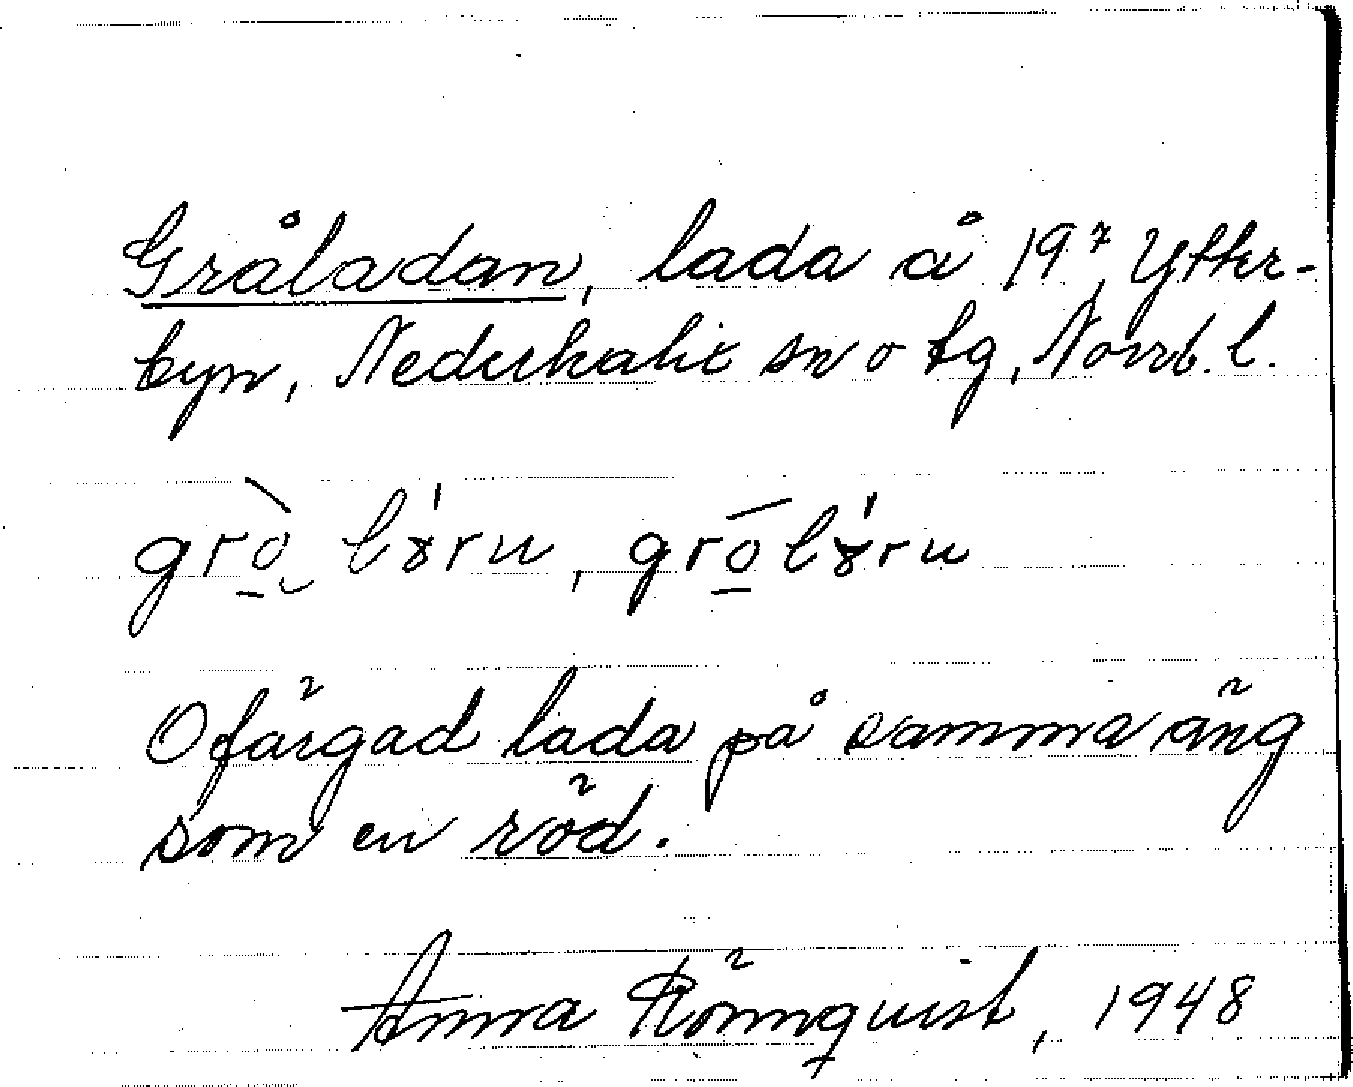 Gråladan, lada å 19⁷, Ytter-
byn, Nederkalix sn o tg, Norrb. l.
Ofärgad lada på samma äng
som en röd.
Anna Rönnquist, 1948